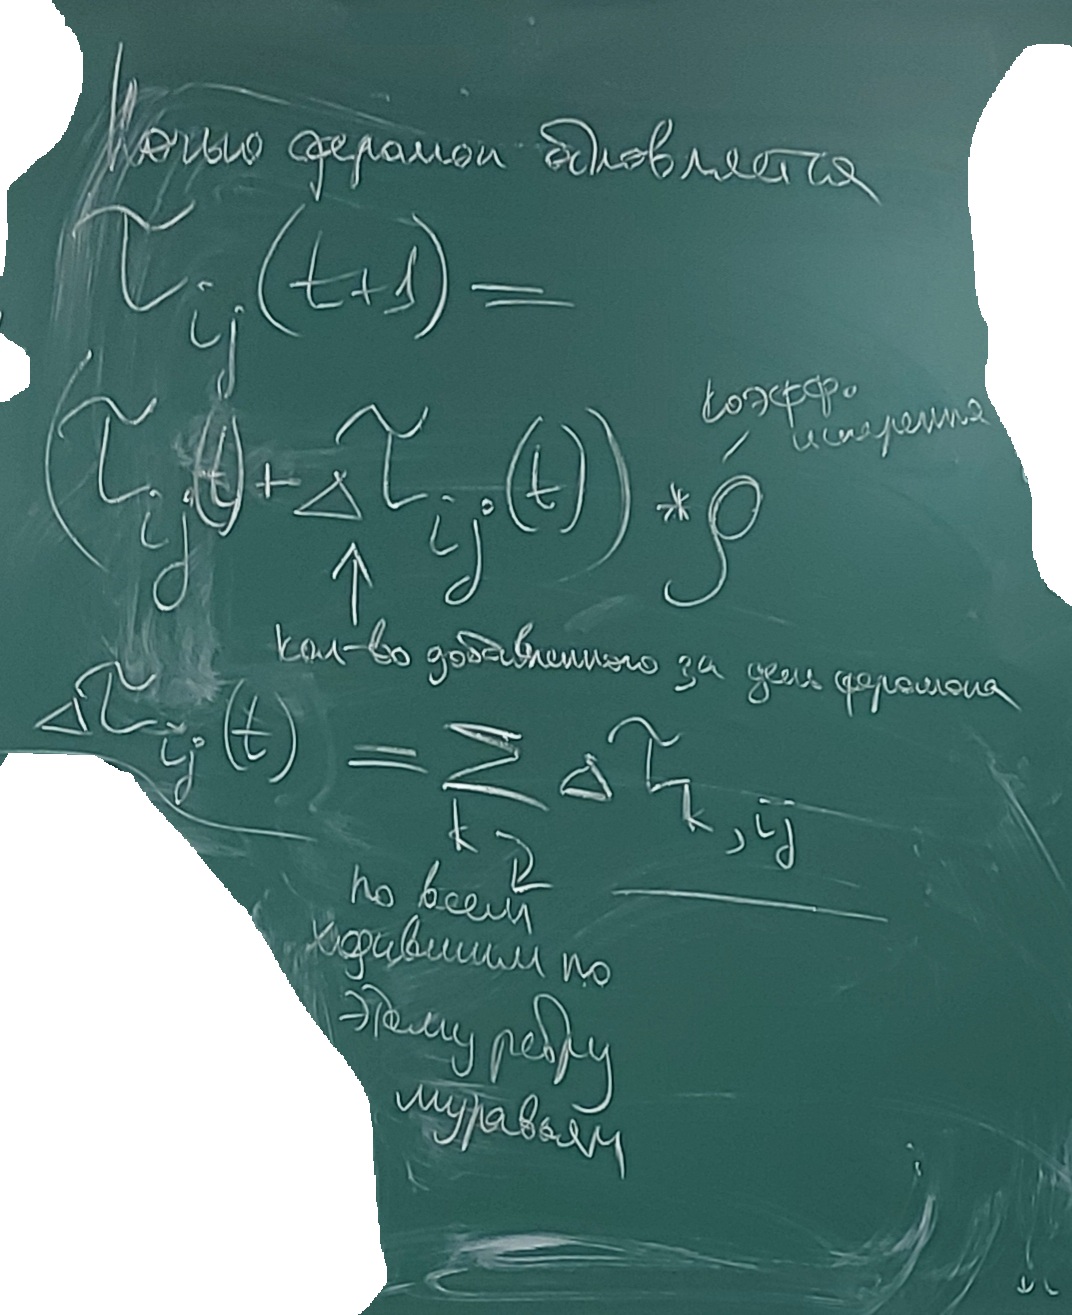 Ночью феромон обновляется
τ_ij (t+1) =
(τ_ij (t) + Δτ_ij (t)) * ρ
коэфф.
испарения
↑
кол-во добавленного за день феромона
Δτ_ij (t) = Σ_k Δτ_k,ij
по всем
ходившим по
этому ребру
муравьям